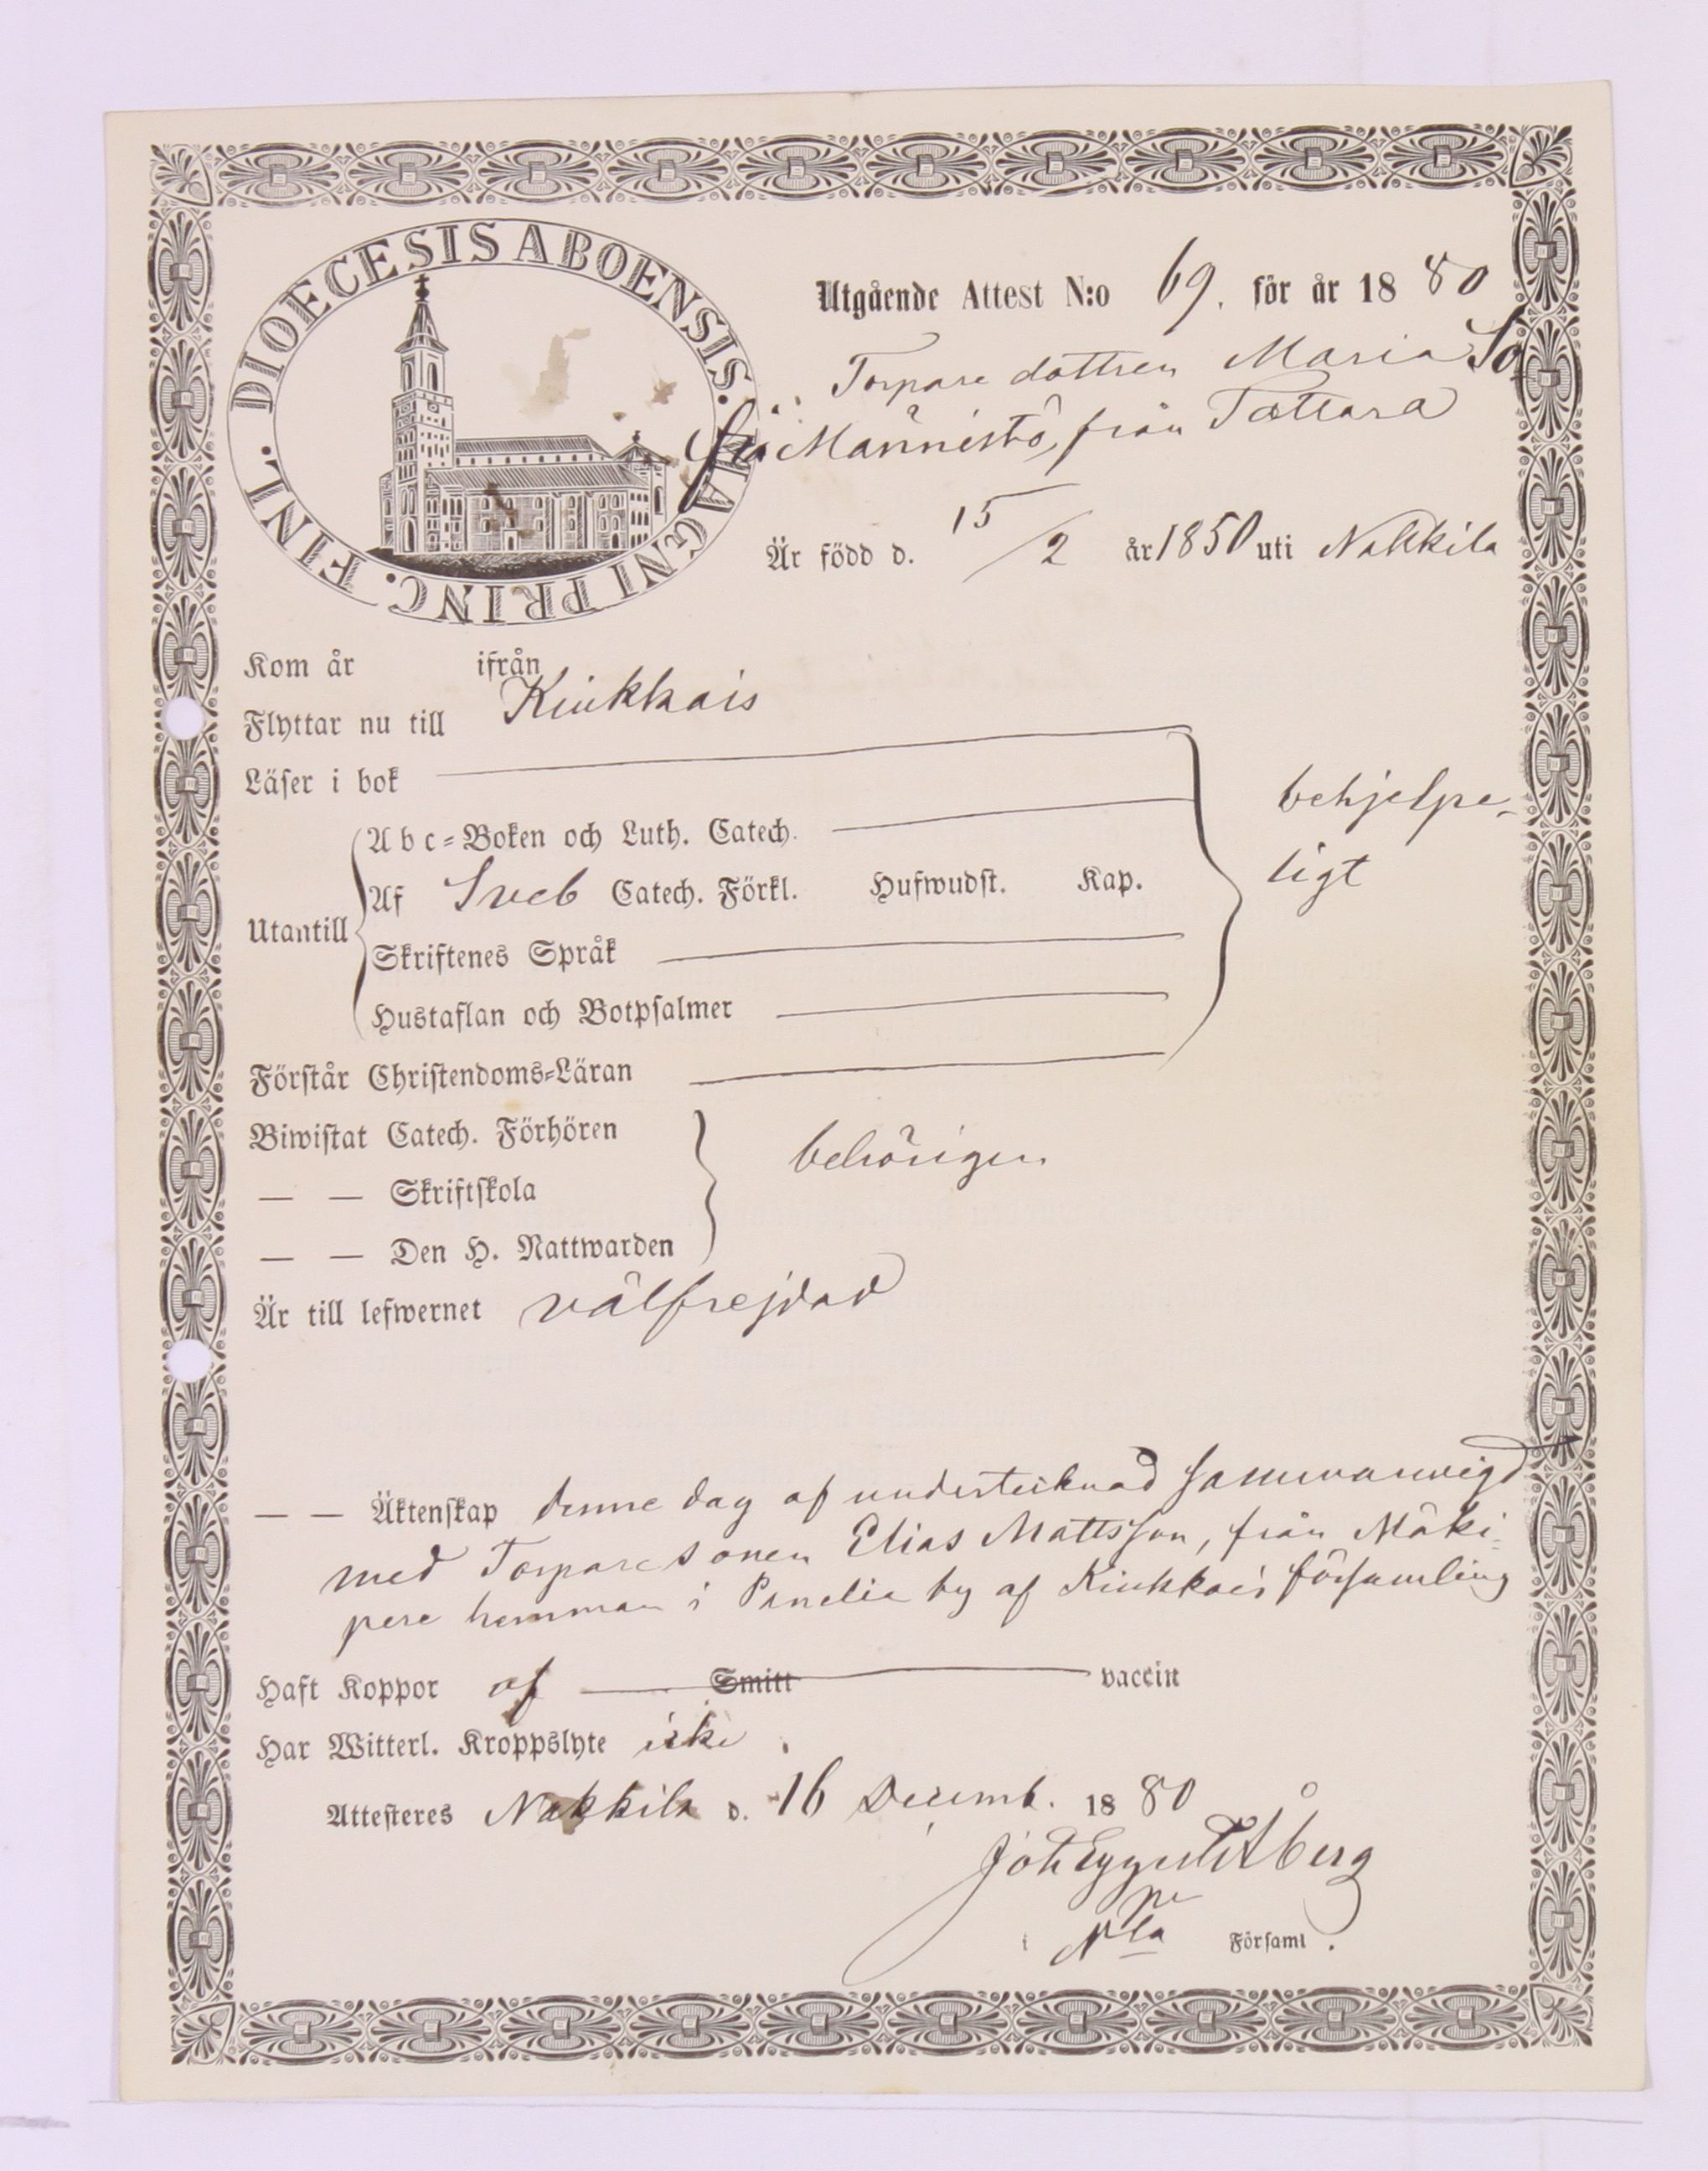 DIOECESIS ABOENSIS. MAGNI PRINC. FINL.
Utgående Attest N:o 69. för år 1880
Torpare dottren Maria So
fia Männistö, från Tattara
Är född d. 15/2 år 1850 uti Nakkila
Kom år ifrån
Flyttar nu till Kiukkais
Läser i bok
Abc-Boken och Luth. Catech.
behjelpe-
ligt
Utantill
Af Sveb Catech. Förkl. Hufwudst. Kap.
Skriftenes Språk
Hustaflan och Botpsalmer
Förstår Christendoms-Läran
Biwistat Catech. Förhören
behörigen
— — Skriftskola
— — Den H. Nattwarden
Är till lefwernet välfrejdad
— — Äktenskap denne dag af undertecknad sammanvigd
med Torparesonen Elias Mattsson, från Mäki-
pere hemman i Panelia by af Kiukkais församling
Haft Koppor af Smitt vaccin
Har Witterl. Kroppslyte icke
Attesteres Nakkila d. 16 Decemb. 1880
Joh Åberg
i Nla Församl.